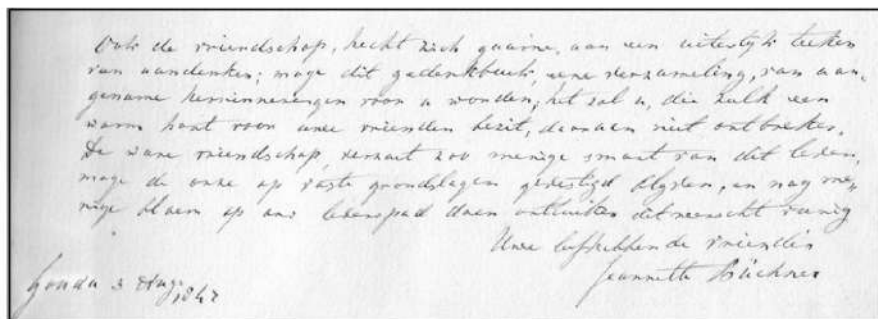 Ook de vriendschap, hecht zich gaarne, aan een uiterlyk teeken
van aandenken; moge dit gedenkboek, eene verzameling, van aan-
gename herinneringen voor u worden; het zal u, die zulk een
warm hart voor uwe vrienden bezit, daaraan niet ontbreken.
De ware vriendschap, verzact zoo menige smart van dit leven,
moge de onze op vaste grondslagen gevestigd blyven, en nog me-
nige bloem op ons levenspad doen ontluiken dit wenscht innig
Uwe liefhebbende vriendin
Jeannette Büchner
Gouda 3 Aug. 1847